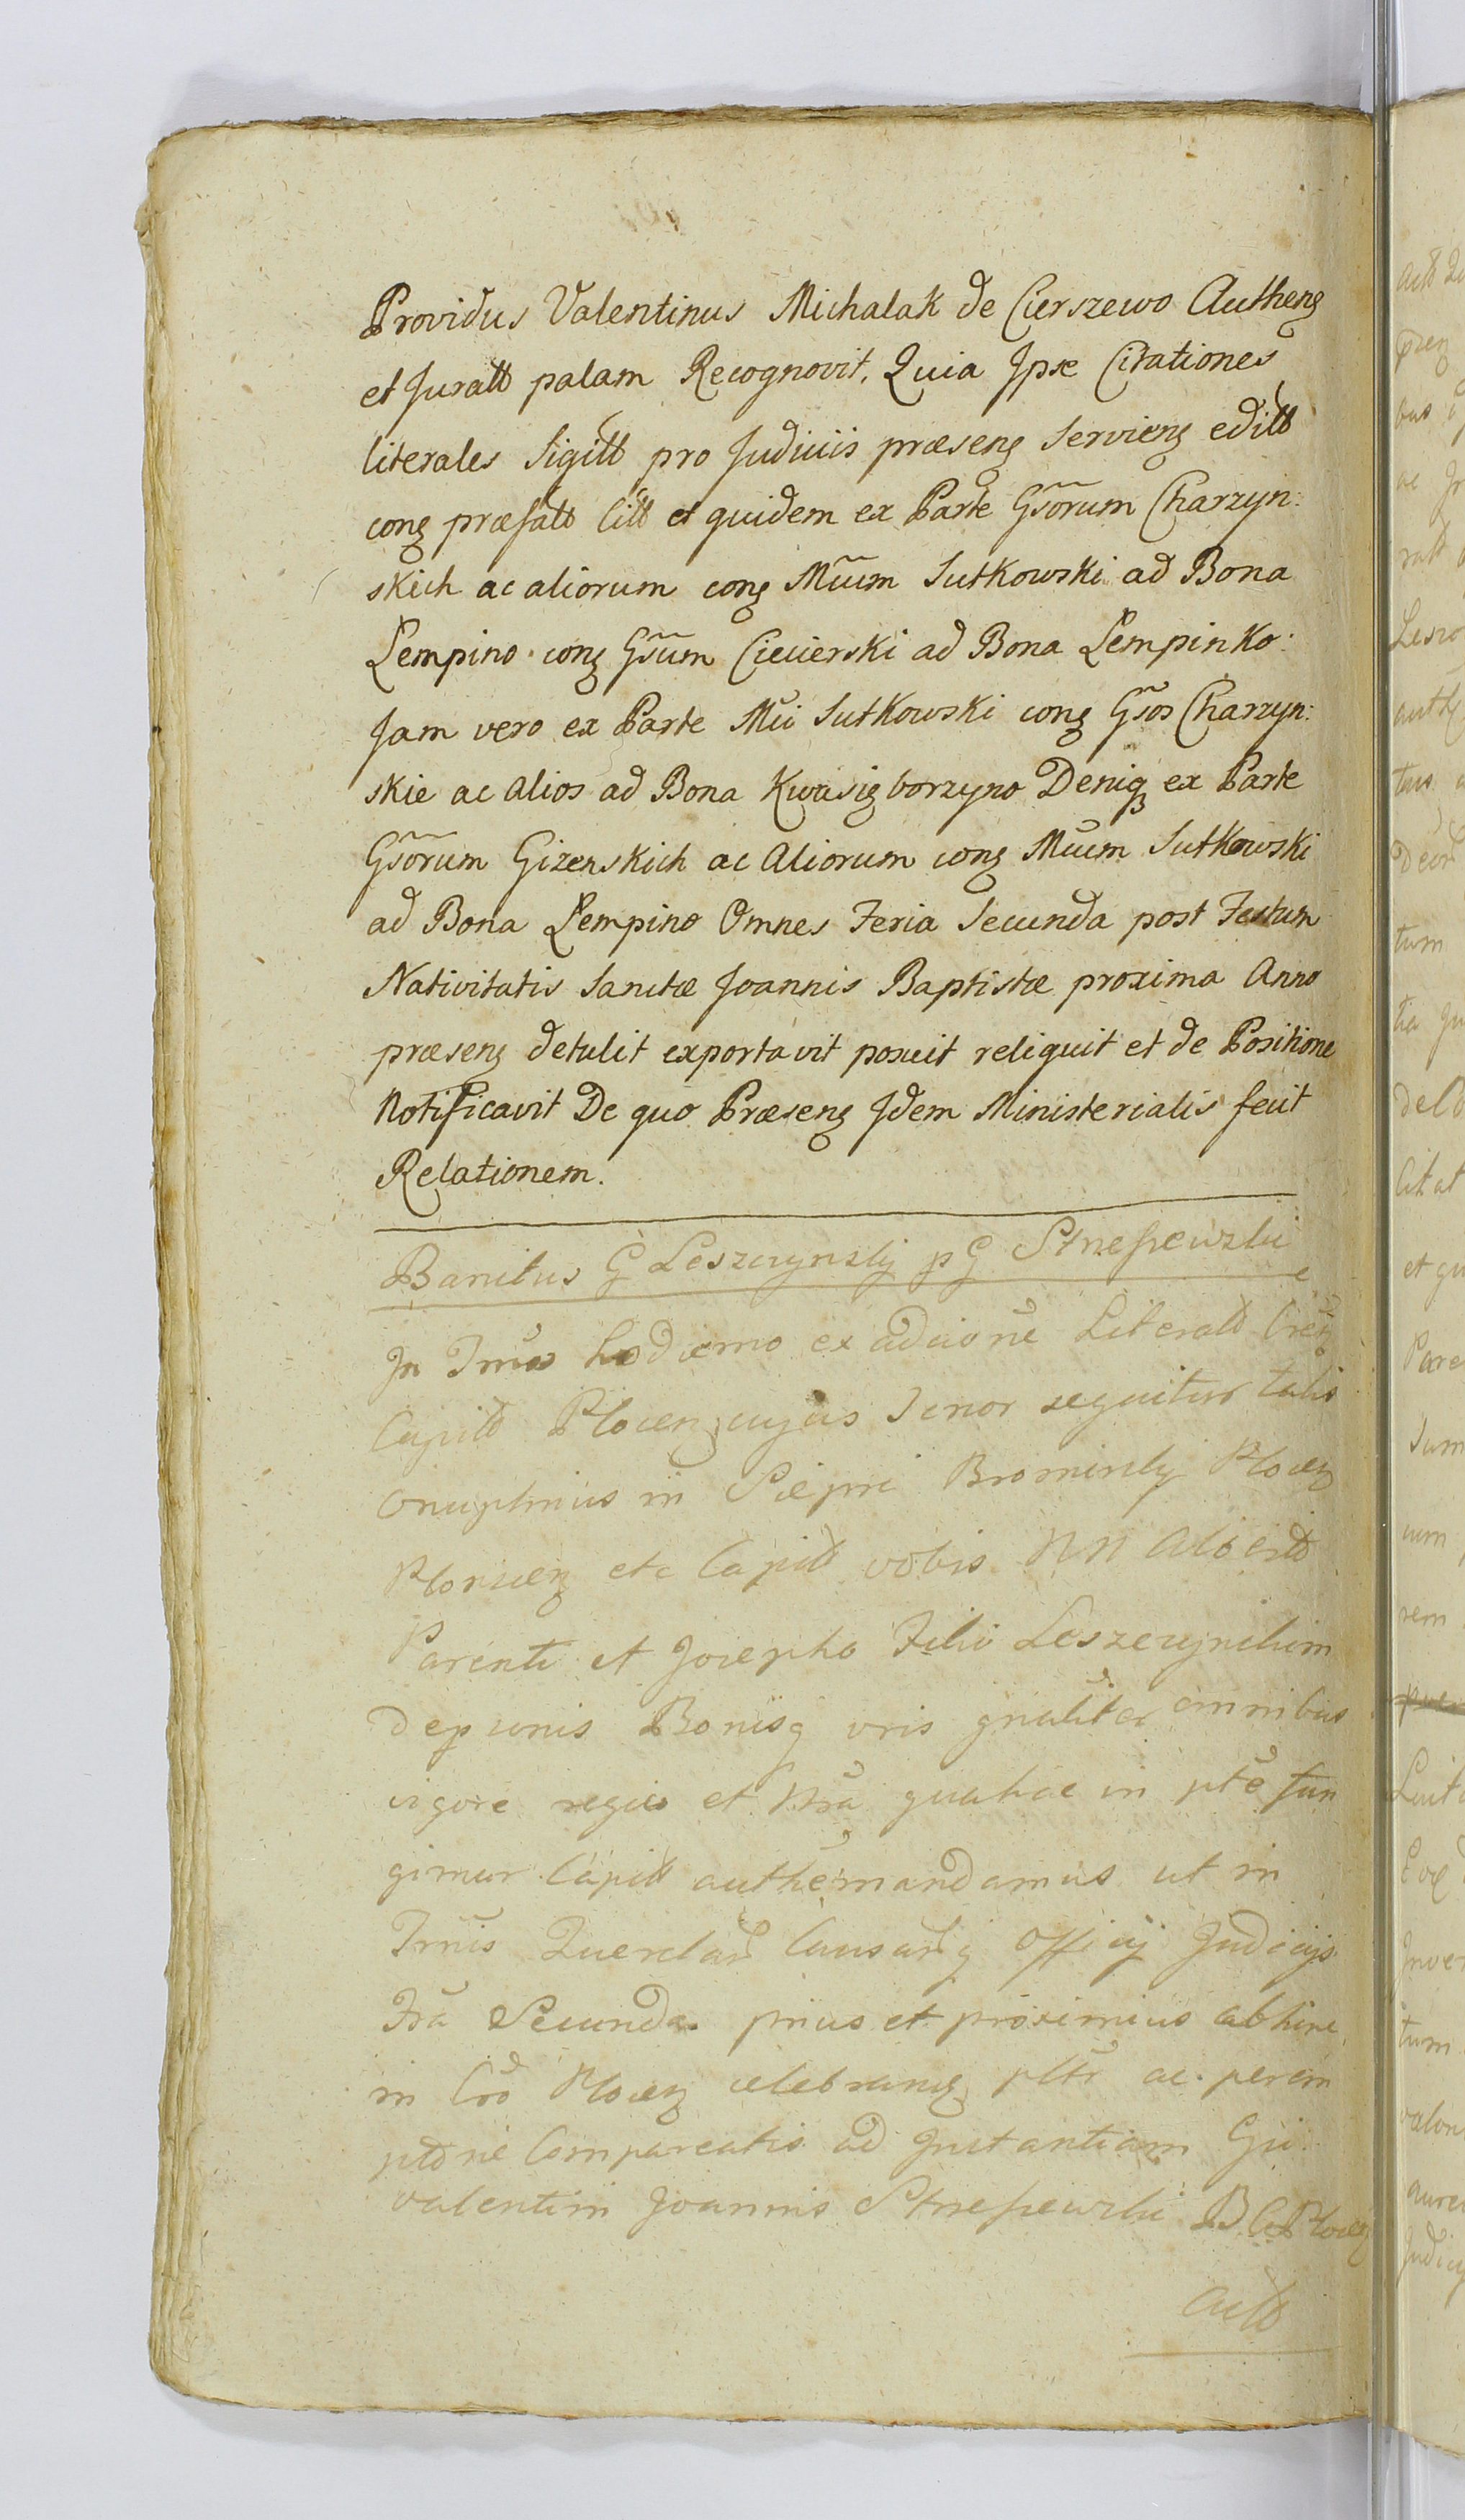 Providus Valentinus Michalak de Cierszewo Authenꝫ
et Juratt palam Recognovit, Quia Ipse Citationes
literales Sigitt pro Judiciis præsenꝫ Servienꝫ editt
conꝫ præfatt Citt et quidem ex Parte Gsõrum Charzyn:
skich ac aliorum conꝫ Mũum Sutkowski ad Bona
Lempino conꝫ Gsũm Ciecierski ad Bona Lempinko:
Jam vero ex Parte Mũi Sutkowski conꝫ Gsõs Charzyn:
skie ac Alios ad Bona Kwasięborzyno Deniqꝫ ex Parte
Gsõrum Gizenskich ac Aliorum conꝫ Mũum Sutkowski
ad Bona Lempino Omnes Feria Secunda post Festum
Nativitatis Sanctæ Joannis Baptistæ proxima Anno
præsenꝫ detulit exportavit posuit reliquit et de Positione
Notificavit De quo Præsenꝫ Idem Ministerialis fecit
Relationem.
Banitus G Leszczynskij p G Strzeszewski
In Tmõs hodierno ex adcione Literatt
Capitt Plocenꝫ cujus Tenor sequitur talis
Onuphrius in Siepri Brominskij Plocenꝫ
Plonscenꝫ etc Capitt vobis NN Albertt
Parenti et Josepho Filio Leszczynskim
de psonis Bonisq vris gnaliter omnibus
vigore regia et Nrã qua hac in ptẽ fun
gimur Capitt authẽ mandamus ut in
Tmĩs Querelar Causarq Officij Judicijs
Frã Secunda prius et proximius abhinc
in Crõ Plocenꝫ celebranꝫ pltr ac perem
ptõrie Compareatis ad Instantiam Gũi
Valentini Joannis Strzeszewski B C Plocenꝫ
Actt